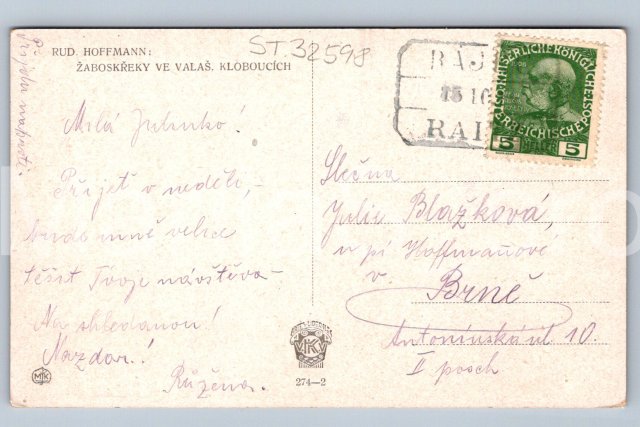 RUD. HOFFMANN:
ŽABOSKŘEKY VE VALAŠ. KLOBOUCÍCH
ST.32598
Milá Julinko!
Přijeť v neděli,
bude mně velice
těšit Tvoje návštěva
Na shledanou!
Nazdar!
Růžena.
MK
274—2
RAJ
15 10
RAI
KAISERLICHE KÖNIGLICHE
ÖSTERREICHISCHE POST
5 HELLER 5
Slečna
Julie Blažková,
u pí Hoffmanové
v Brně
Antonínská ul 10.
II posch